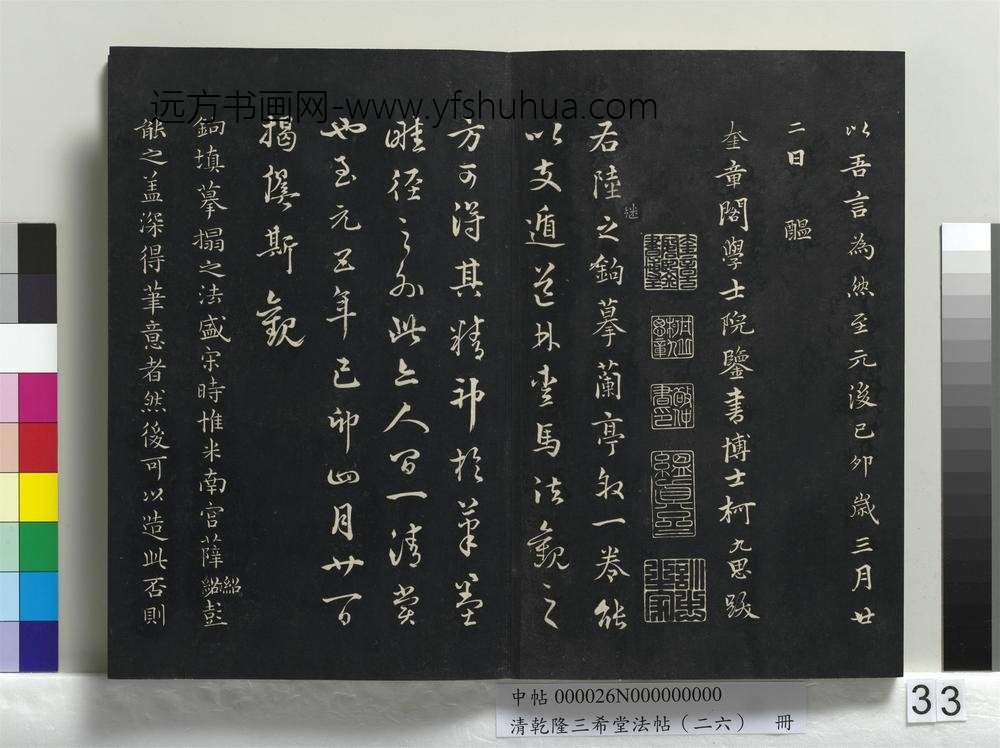 远方书画网-www.yfshuhua.com
以吾言為然至元後己卯歲三月廿
二日 醖
奎章閣學士院鑒書博士柯九思跋
右陸繼之鉤摹蘭亭敘一卷能
以支遁道林愛馬法觀之
方可得其精神於筆墨
畦徑之外此亦人間一清賞
也至元五年己卯四月廿一日
揭傒斯觀
鉤填摹搨之法盛宋時惟米南宮薛紹彭
能之盖深得筆意者然後可以造此否則
中帖 000026N000000000
清乾隆三希堂法帖（二六） 冊
33